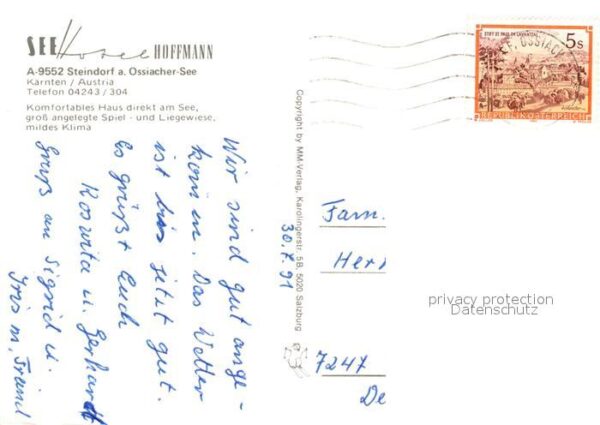 SEE Hotel HOFFMANN
A-9552 Steindorf a. Ossiacher-See
Kärnten / Austria
Telefon 04243 / 304
Komfortables Haus direkt am See,
groß angelegte Spiel - und Liegewiese,
mildes Klima
Wir sind gut ange-
kommen. Das Wetter
ist bis jetzt gut.
Es grüßt Euch
Roswita u. Gerhardt
Gruß an Sigrid u.
Iris m.
30.7.91
Copyright by MM-Verlag, Karolingerstr. 5B, 5020 Salzburg
STIFT ST. PAUL IM LAVANTTAL
5s
REPUBLIK ÖSTERREICH
OSSIACH
Fam.
Her
7247
De
privacy protection
Datenschutz